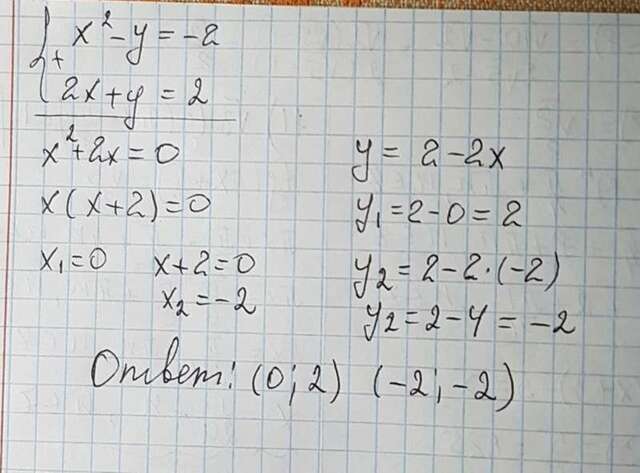 x² - y = -2
+
2x + y = 2
x² + 2x = 0
x(x + 2) = 0
x₁ = 0   x + 2 = 0
x₂ = -2
y = 2 - 2x
y₁ = 2 - 0 = 2
y₂ = 2 - 2·(-2)
y₂ = 2 - 4 = -2
Ответ: (0; 2) (-2; -2)